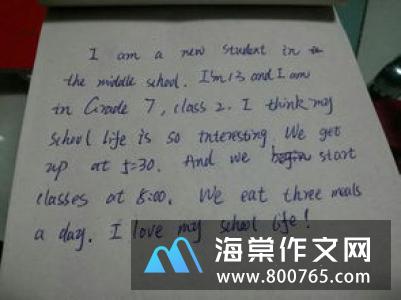 I am a new student in
the middle school. I'm 13 and I am
in Grade 7, class 2. I think my
school life is so interesting. We get
up at 5:30. And we begin start
classes at 8:00. We eat three meals
a day. I love my school life!
海棠作文网
www.800765.com